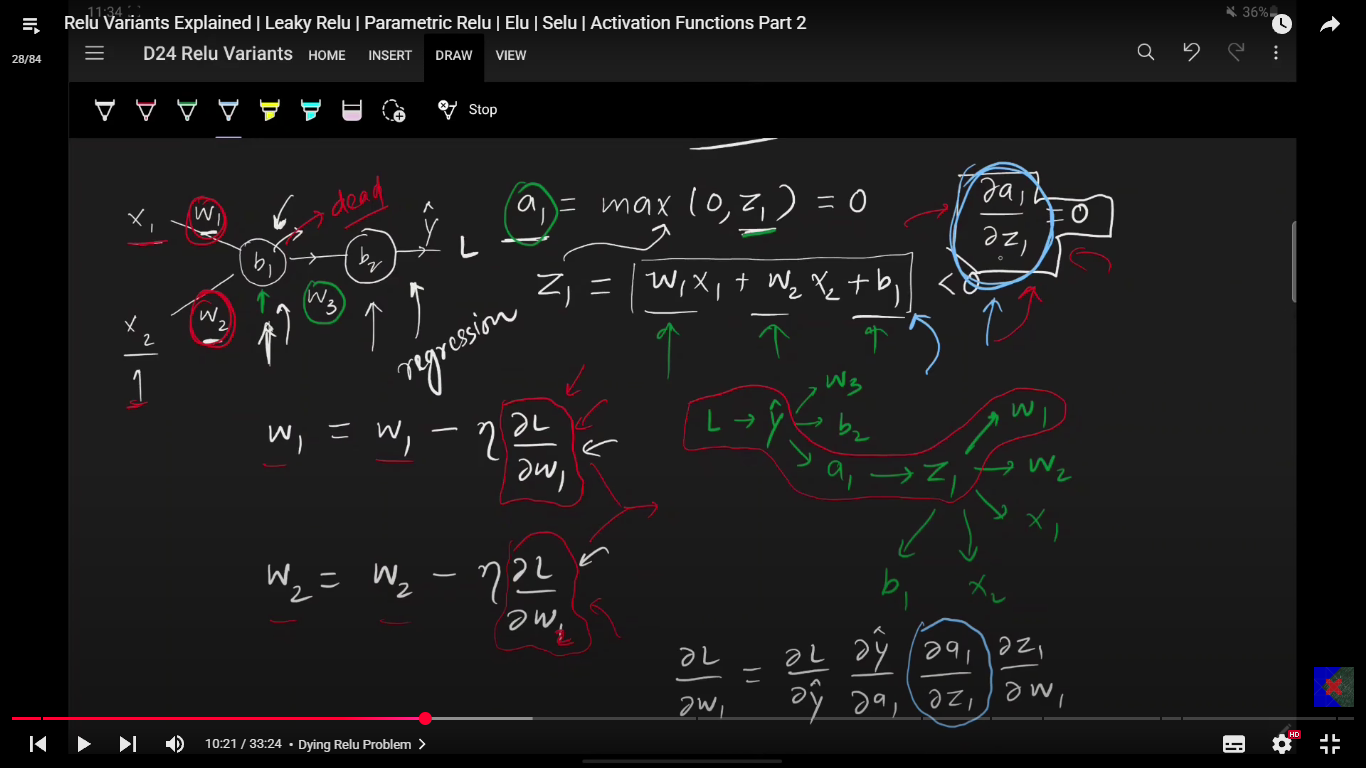 11:34
36%
Relu Variants Explained | Leaky Relu | Parametric Relu | Elu | Selu | Activation Functions Part 2
28/84
D24 Relu Variants HOME INSERT DRAW VIEW
Stop
x₁ w₁ dead
b₁ b₂ ŷ L
w₃
x₂ w₂
1
regression
a₁ = max (0, z₁) = 0
z₁ = w₁x₁ + w₂x₂ + b₁ < 0
∂a₁/∂z₁ = 0
w₁ = w₁ − η ∂L/∂w₁
w₂ = w₂ − η ∂L/∂w₂
L → ŷ → w₃
→ b₂
a₁ → z₁ → w₁
→ w₂
x₁
b₁ x₂
∂L/∂w₁ = ∂L/∂ŷ ∂ŷ/∂a₁ ∂a₁/∂z₁ ∂z₁/∂w₁
10:21 / 33:24 • Dying Relu Problem
HD